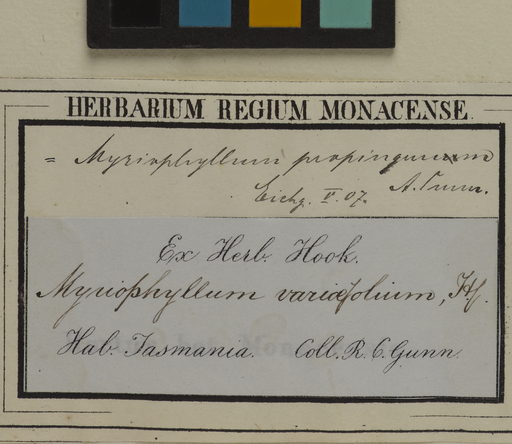 HERBARIUM REGIUM MONACENSE.
= Myriophyllum propinquum
A. Cunn.
Eichg. V. 07.
Ex Herb. Hook.
Myriophyllum variæfolium, Hf.
Hab. Tasmania. Coll. R. C. Gunn.